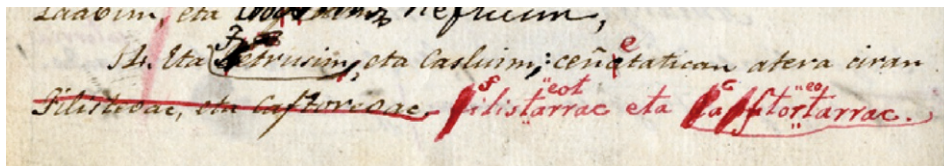 Laabim, eta Neftuim,
14. Eta Petrusim, eta Casluim; ceñetatican atera ciran
Filistivac, eta Caftorivac. Filistarrac eta Caftortarrac.